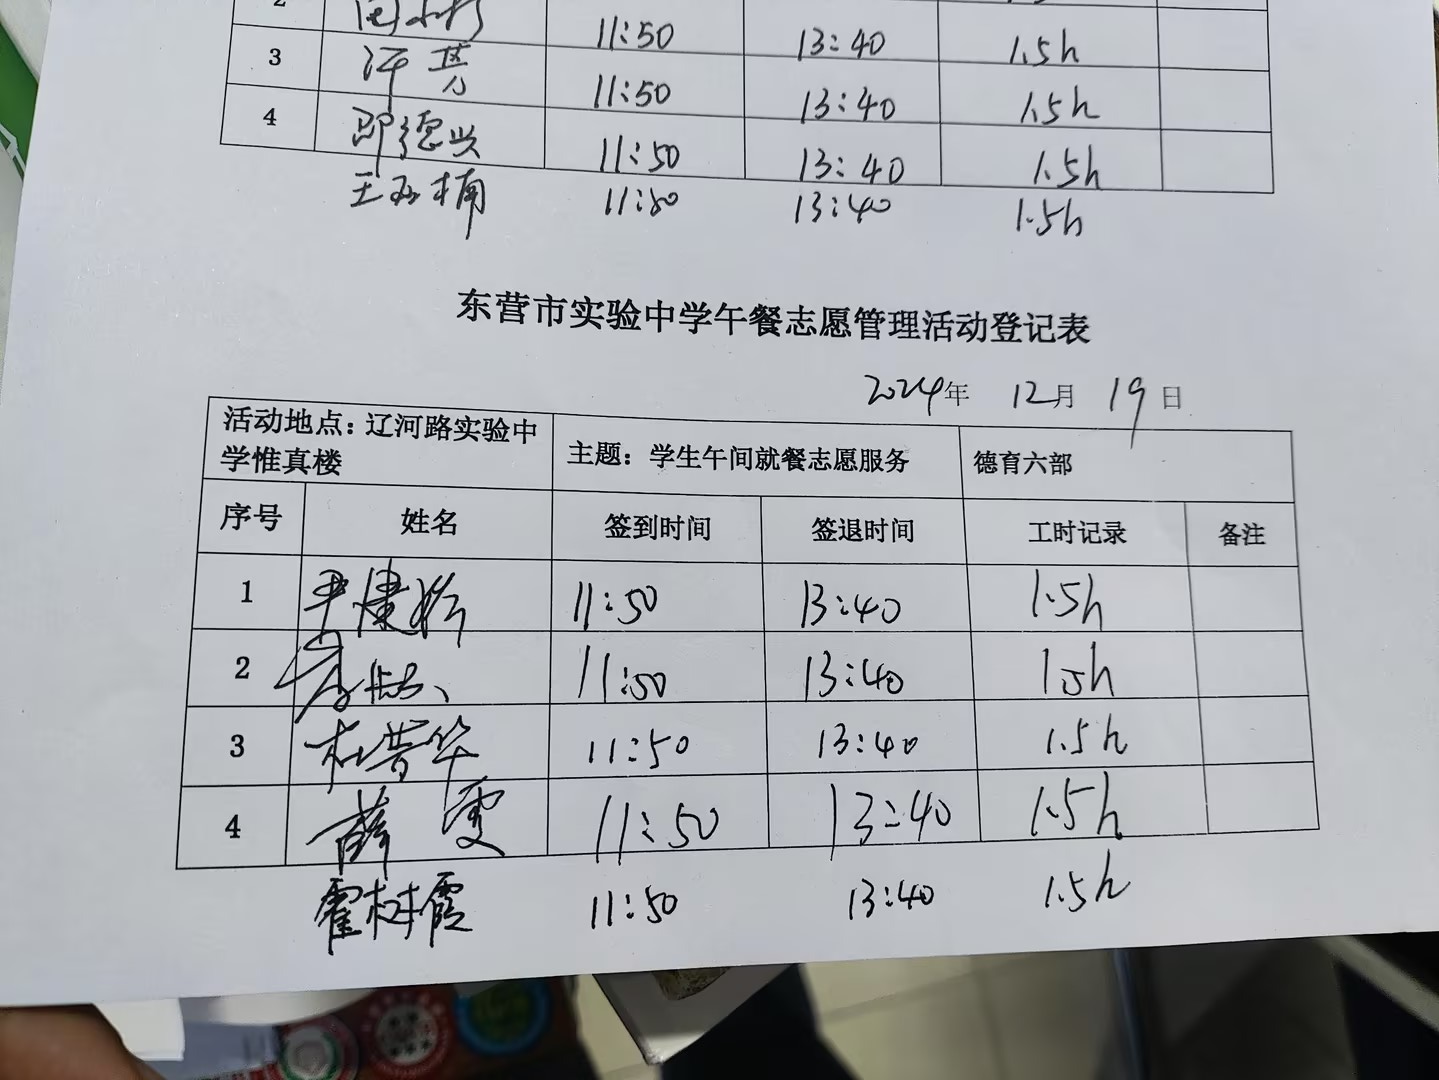 2 11:50 13:40 1.5h
3 许芳 11:50 13:40 1.5h
4 郭德兴 11:50 13:40 1.5h
王 楠 11:50 13:40 1.5h
东营市实验中学午餐志愿管理活动登记表
2024年 12月 19日
活动地点:辽河路实验中学惟真楼 主题:学生午间就餐志愿服务 德育六部
序号 姓名 签到时间 签退时间 工时记录 备注
1 11:50 13:40 1.5h
2 11:50 13:40 1.5h
3 杜普华 11:50 13:40 1.5h
4 薛雯 11:50 13:40 1.5h
霍树霞 11:50 13:40 1.5h